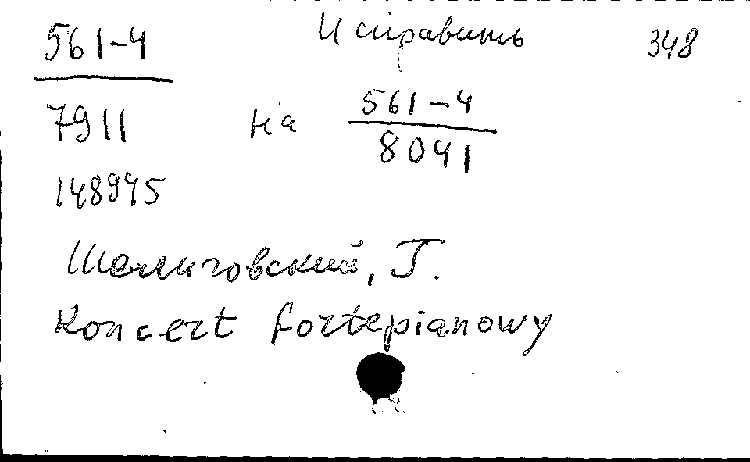 561-4 Исправить 348
7911 на 561-4
8041
148945
Шелиговский, Т.
Koncert fortepianowy